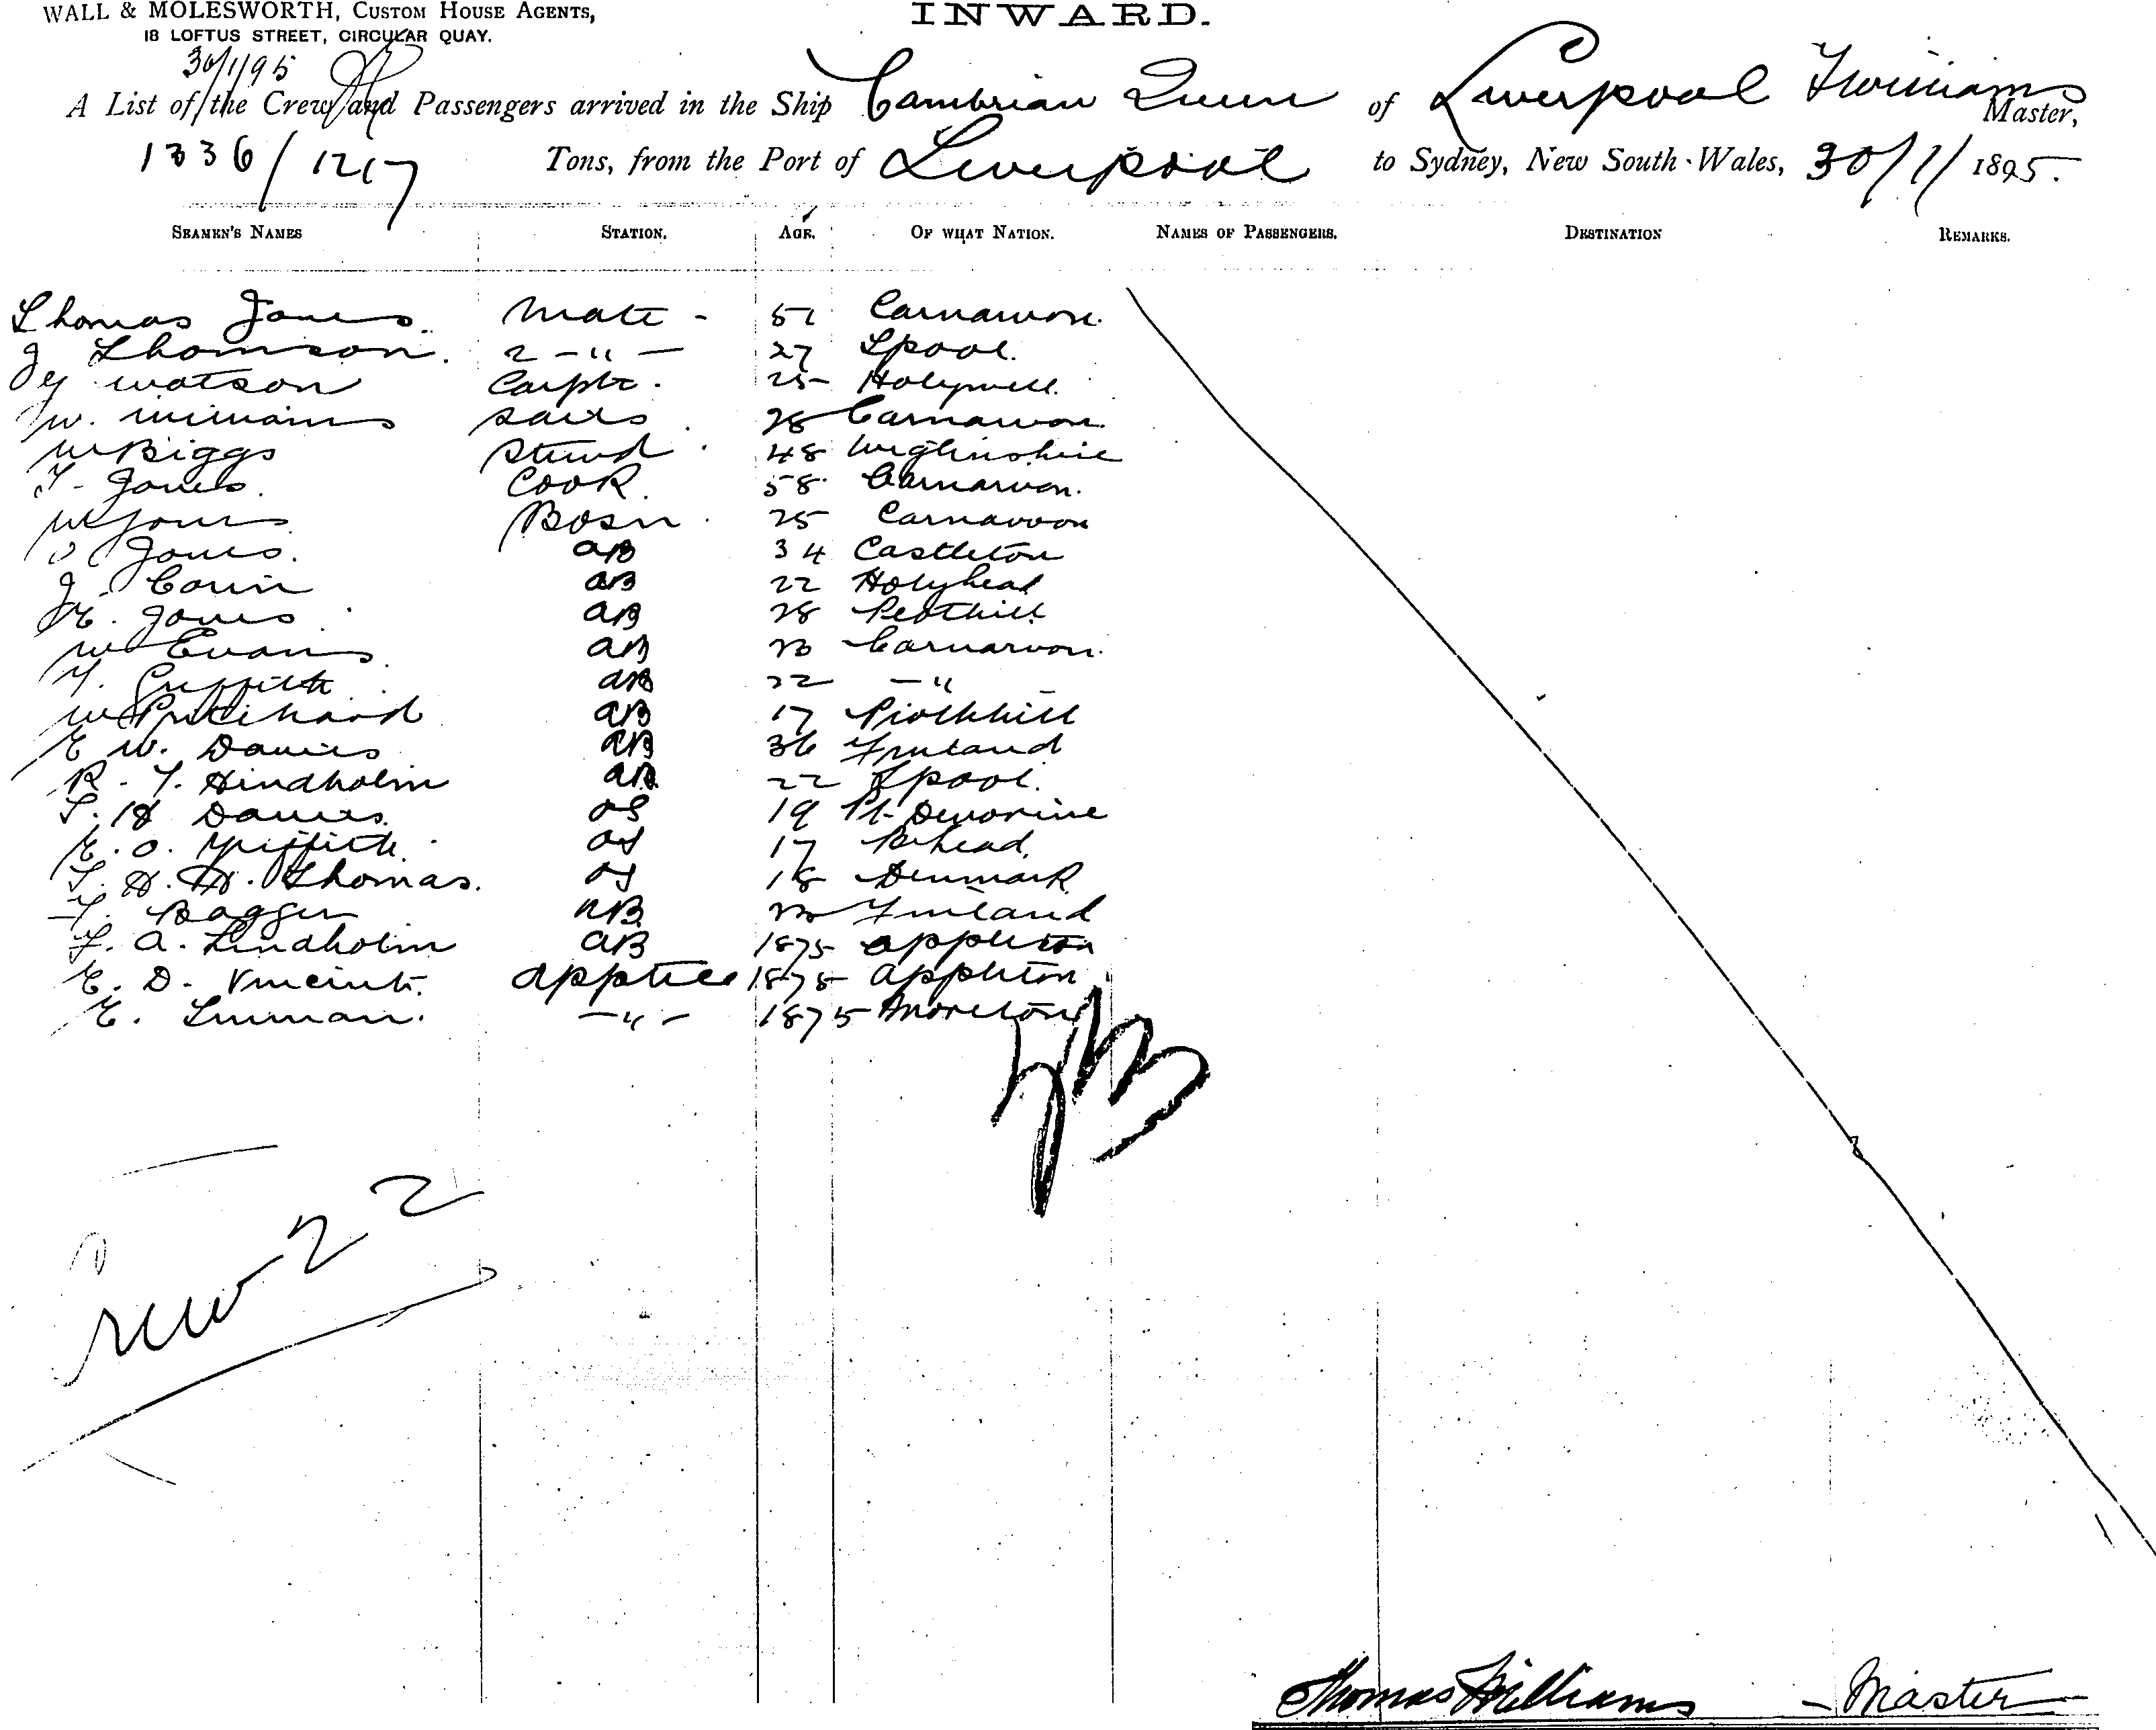 WALL & MOLESWORTH, CUSTOM HOUSE AGENTS,
18 LOFTUS STREET, CIRCULAR QUAY.
INWARD.
30/1/95
A List of the Crew and Passengers arrived in the Ship Cambrian Queen of Liverpool T Williams Master,
1336/1217 Tons, from the Port of Liverpool to Sydney, New South Wales, 30/1/1895.
SEAMEN'S NAMES STATION. AGE. OF WHAT NATION. NAMES OF PASSENGERS. DESTINATION REMARKS.
Thomas Jones. Mate - Carnarvon.
J Thomson. 2 - " - 27 Lpool.
Watson Carptr. 25 Holywell.
W. Williams Sails 28 Carnarvon.
W Biggs Steward 48
T. Jones. Cook 58 Carnarvon.
W Jones Bosn. 25 Carnarvon
O Jones. AB 34 Castleton
J. AB 22 Holyhead
E. Jones AB 28
W Evans AB 23 Carnarvon.
Griffith AB 22 - "
W Pritchard AB 17
E W. Davies AB 36 Finland
R. T. Hindholm AB 22 Lpool.
T. H Davies. OS 19 Pt.
E. O. Griffith. OS 17 Bhead.
T. H. H. Thomas. OS 18 Denmark
Bagger AB 23 Finland
F. A. Lindholm AB 1875 Appleton
E. D. Vincent. Apptice 1878 Appleton
E. - " - 1875 Moreton
Crew 22
Thomas Williams - Master